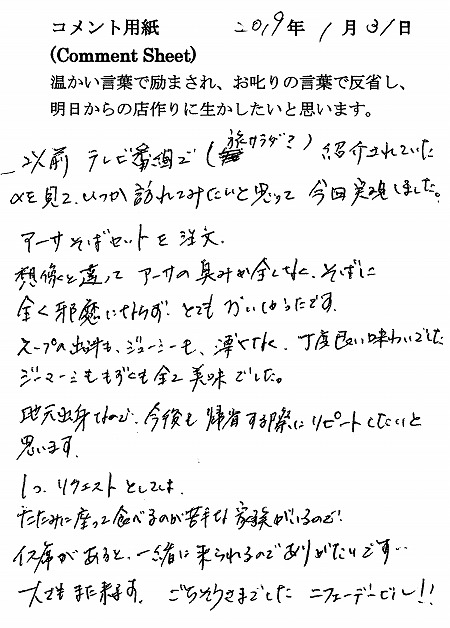 コメント用紙 2019年 1月31日
(Comment Sheet)
温かい言葉で励まされ、お叱りの言葉で反省し、
明日からの店作りに生かしたいと思います。
以前 テレビ番組で(旅サラダ?)紹介されていた
のを見て、いつか訪れてみたいと思って 今回実現しました。
アーサそばセットを注文。
想像と違って アーサの臭みが全くなく、そばに
全く邪魔にならず とてもおいしかったです。
スープの出汁も、ジューシーも、薄くなく、丁度良い味わいでした
ジーマーミももずくも全て美味でした。
地元出身なので、今後も帰省する際にリピートしたいと
思います。
1つ、リクエストとしては、
たたみに座って食べるのが苦手な家族がいるので、
イス席があると、一緒に来られるのでありがたいです…
一人でもまた来ます。 ごちそうさまでした ニフェーデービル!!